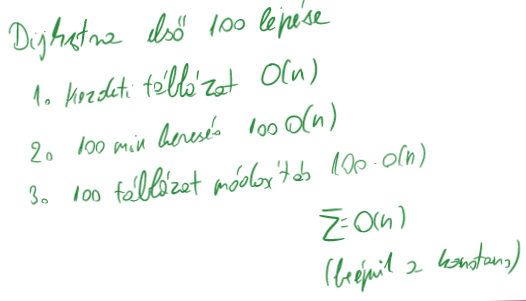 Dijkstra első 100 lépése
1. kezdeti táblázat O(n)
2. 100 min keresés 100 O(n)
3. 100 táblázat módosítás 100·O(n)
Σ=O(n)
(beépül a konstans)